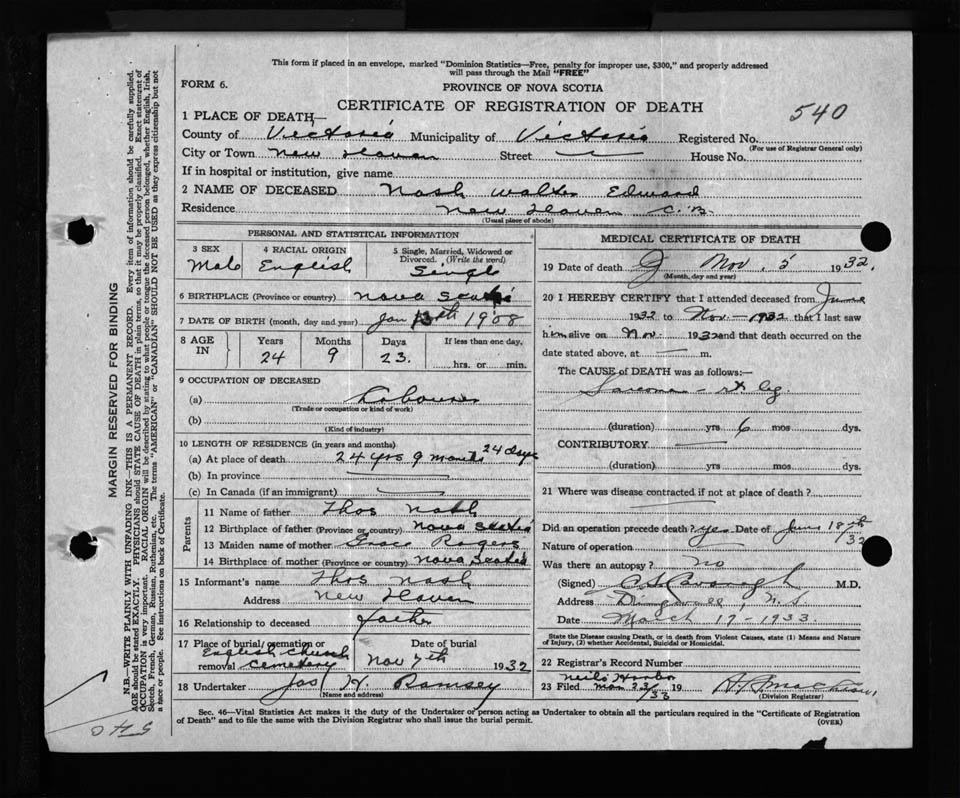 This form if placed in an envelope, marked "Dominion Statistics—Free, penalty for improper use, $300," and properly addressed
will pass through the Mail "FREE"
FORM 6.
PROVINCE OF NOVA SCOTIA
CERTIFICATE OF REGISTRATION OF DEATH
540
1 PLACE OF DEATH—
County of Victoria Municipality of Victoria Registered No.
(For use of Registrar General only)
City or Town New Haven Street House No.
If in hospital or institution, give name
2 NAME OF DECEASED Nash Walter Edward
Residence New Haven C.B.
(Usual place of abode)
PERSONAL AND STATISTICAL INFORMATION
3 SEX 4 RACIAL ORIGIN 5 Single, Married, Widowed or
Divorced. (Write the word)
Male English Single
6 BIRTHPLACE (Province or country) Nova Scotia
7 DATE OF BIRTH (month, day and year) Jan 13th 1908
8 AGE IN Years Months Days If less than one day,
24 9 23 hrs. or min.
9 OCCUPATION OF DECEASED
(a) Labourer
(Trade or occupation or kind of work)
(b)
(Kind of industry)
10 LENGTH OF RESIDENCE (in years and months)
(a) At place of death 24 yrs 9 months 24 days
(b) In province
(c) In Canada (if an immigrant)
Parents
11 Name of father Thos Nash
12 Birthplace of father (Province or country) Nova Scotia
13 Maiden name of mother Grace Rogers
14 Birthplace of mother (Province or country) Nova Scotia
15 Informant's name Thos Nash
Address New Haven
16 Relationship to deceased father
17 Place of burial, cremation or removal English Church Cemetery
Date of burial Nov 7th 1932
18 Undertaker Jas H. Ramsey
(Name and address)
MEDICAL CERTIFICATE OF DEATH
19 Date of death Nov. 5 1932.
(Month, day and year)
20 I HEREBY CERTIFY that I attended deceased from June
1932 to Nov — 1932 that I last saw
him alive on Nov. 1932 and that death occurred on the
date stated above, at — m.
The CAUSE of DEATH was as follows:—
Sarcoma — rt leg
(duration) yrs 6 mos dys.
CONTRIBUTORY
(duration) yrs mos dys.
21 Where was disease contracted if not at place of death?
Did an operation precede death? yes Date of June 18th/32
Nature of operation
Was there an autopsy? no
(Signed) M.D.
Address Dingwall, N.S
Date March 17-1933.
State the Disease causing Death, or in death from Violent Causes, state (1) Means and Nature
of Injury, (2) whether Accidental, Suicidal or Homicidal.
22 Registrar's Record Number
Neils Harbor
23 Filed Mar 23/33 19
(Division Registrar)
Sec. 46—Vital Statistics Act makes it the duty of the Undertaker or person acting as Undertaker to obtain all the particulars required in the "Certificate of Registration
of Death" and to file the same with the Division Registrar who shall issue the burial permit.
(OVER)
MARGIN RESERVED FOR BINDING
N.B.—WRITE PLAINLY WITH UNFADING INK—THIS IS A PERMANENT RECORD. Every item of information should be carefully supplied.
AGE should be stated EXACTLY. PHYSICIANS should STATE CAUSE OF DEATH in plain terms, so that it may be properly classified. Exact statement of
OCCUPATION is very important. RACIAL ORIGIN will be described by stating to what people or tongue the deceased person belonged, whether English, Irish,
Scotch, French, German, Russian, Ruthenian, etc. The terms "AMERICAN" or "CANADIAN" SHOULD NOT BE USED as they express citizenship but not
a race or people. See instructions on back of Certificate.